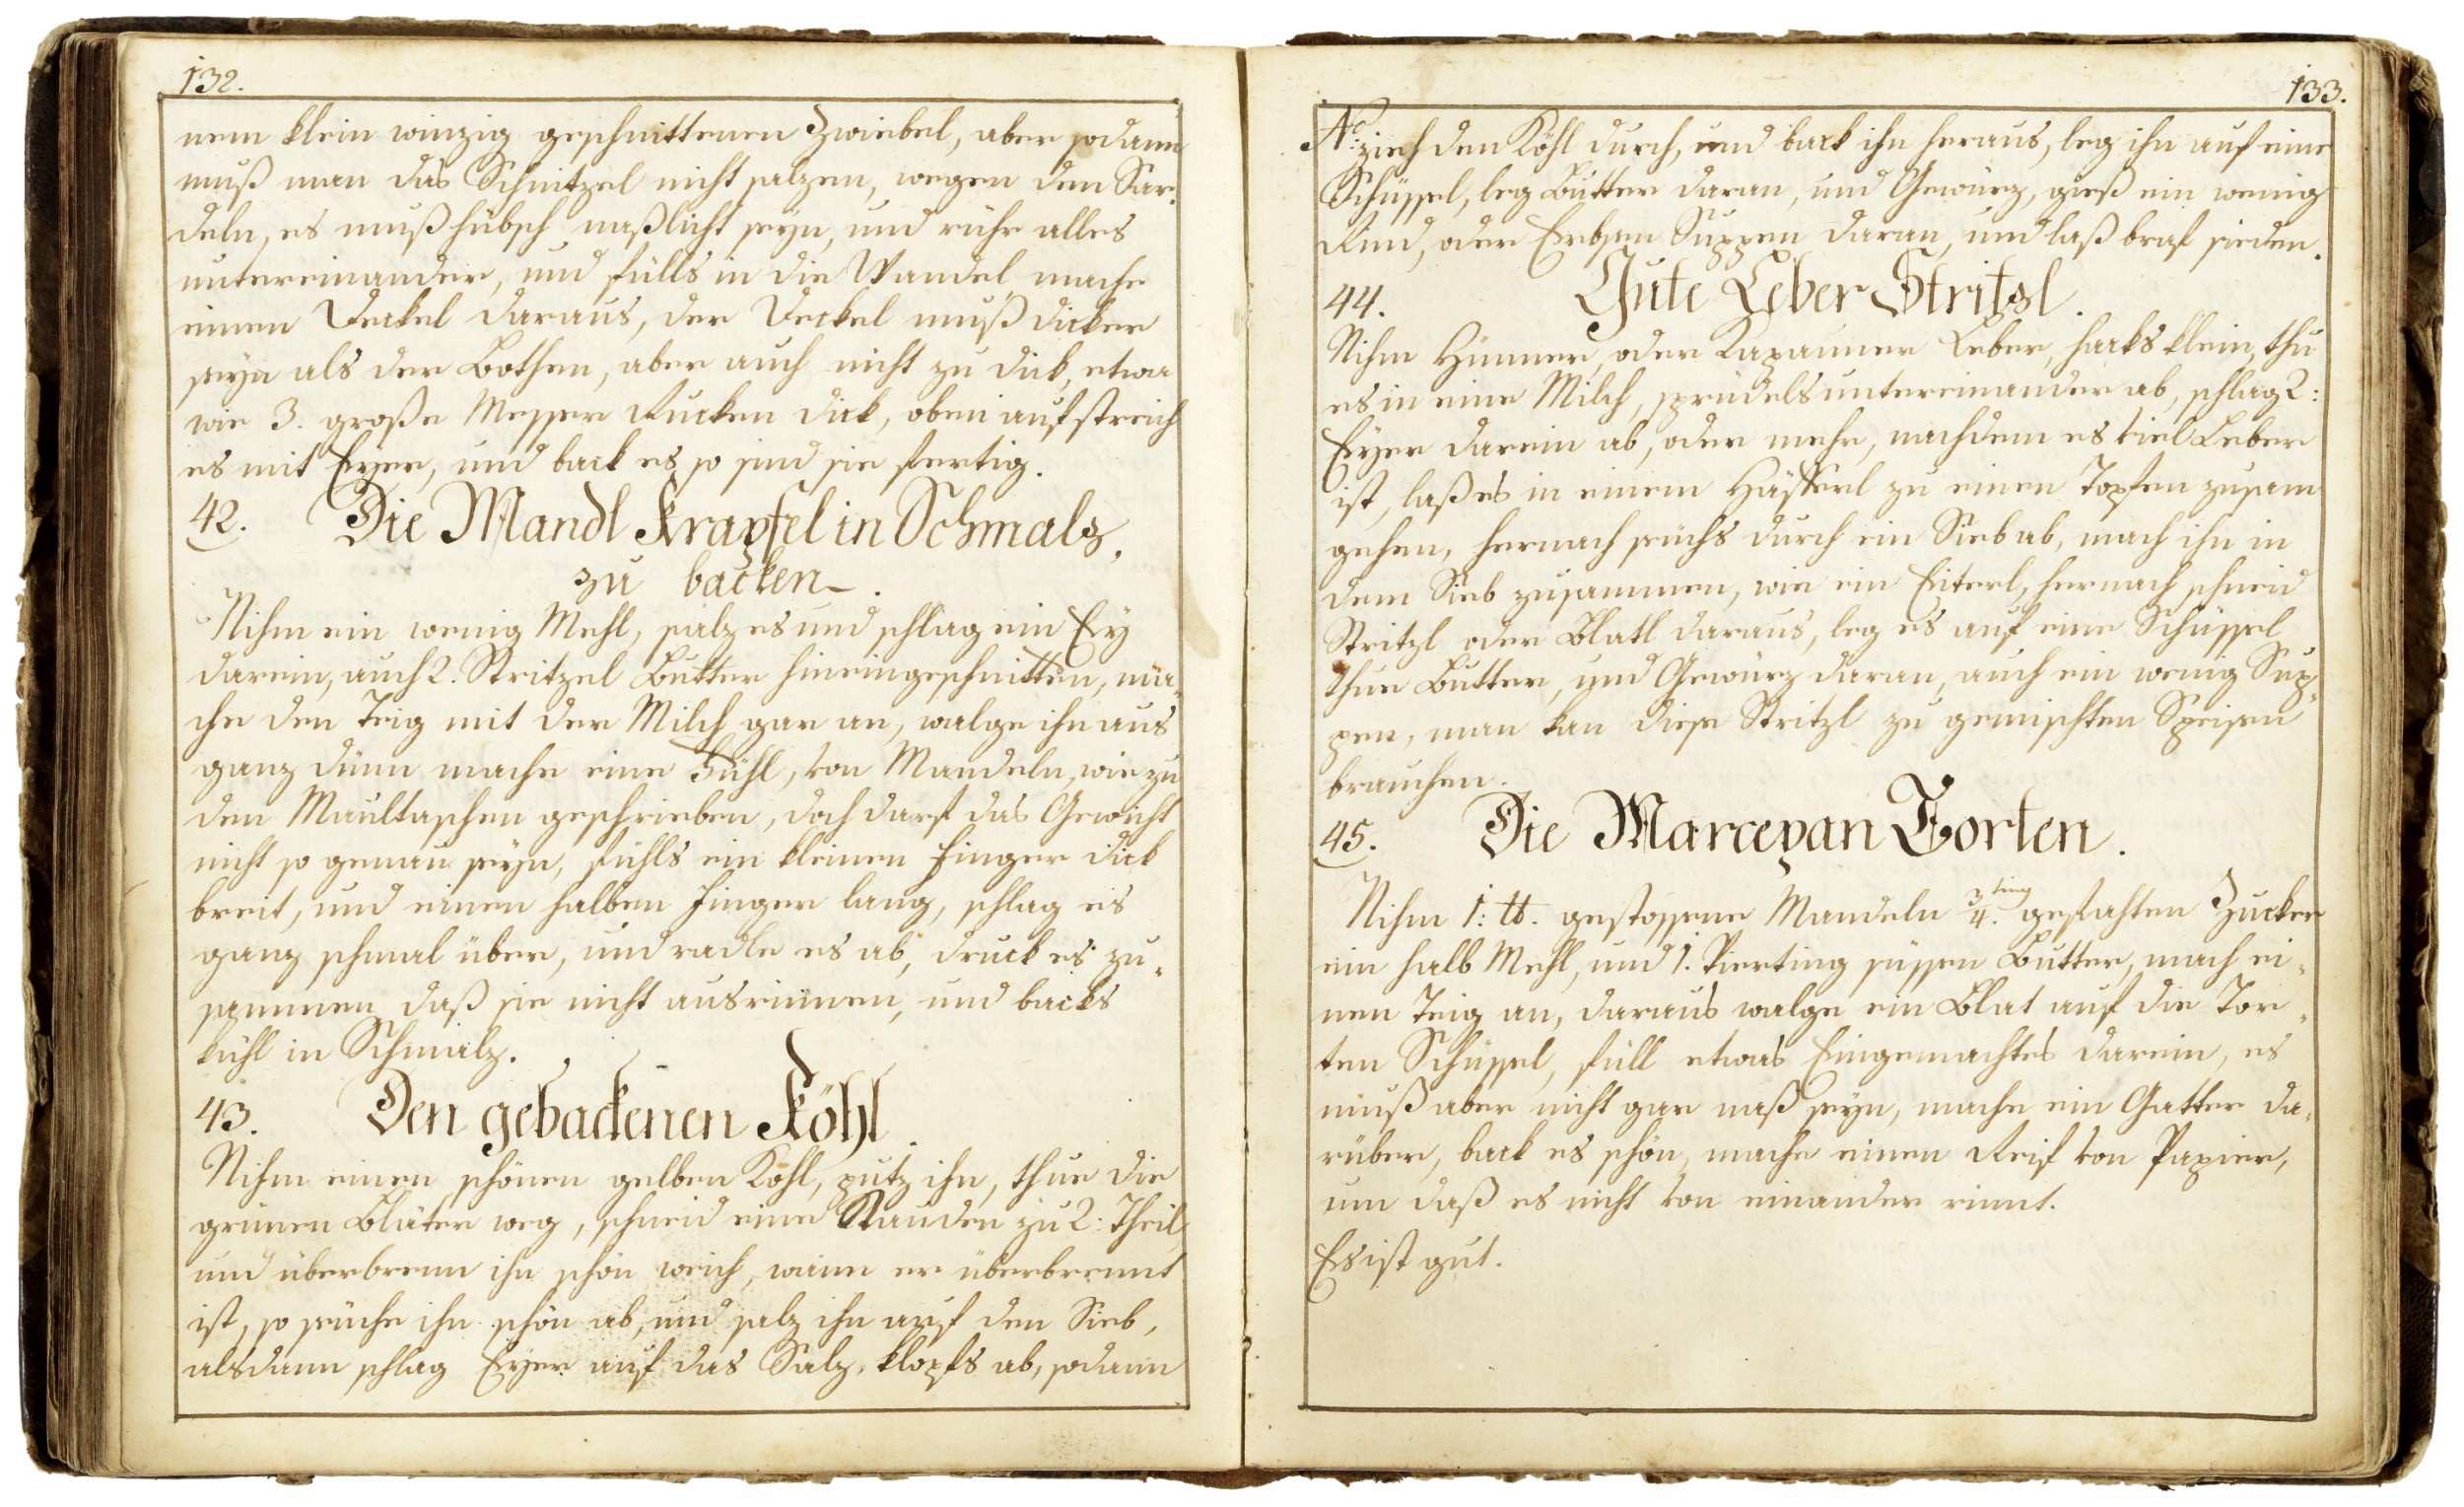 132.
nem klein winzig geschnittenen Zwiebel, aber sodann
muß man das Schnitzel nicht salzen, wegen den Sar„
deln, es muß hübsch naßlicht seyn, und rühr alles
untereinander, und fülls in die Wandel, mache
einen Deckel daraus, der Deckel muß dicker
seyn als der Bothen, aber auch nicht zu dick, etwa
wie 3. große Messer Rucken dick, oben auf streich
es mit Eyer, und back es, so sind sie fertig.
42. Die Mandl Krapfel in Schmalz,
zu backen.
Nihm ein wenig Mehl, salz es und schlag ein Ey
darein, auch 2. Stritzel Butter hineingeschnitten, ma„
che den Teig mit der Milch gar an, walge ihn aus
ganz dünn mache eine Fühl, von Mandeln, wie zu
den Maultaschen geschrieben, doch darf das Gewicht
nicht so genau seyn, fühls ein kleinen Finger dick
breit, und einen halben Finger lang, schlag es
ganz schmal über, und radle es ab, druck es zu„
sammen daß sie nicht ausrinnen, und backs
kühl in Schmalz.
43. Den gebackenen Köhl.
Nihm einen schönen gelben Köhl, putz ihn, thue die
grünen Bläter weg, schneid eine Stauden zu 2: Theil,
und überbrenn ihn schön weich, wann er überbrennt
ist, so seuche ihn schön ab, und salz ihn auf den Sieb,
alsdann schlag Eyer auf das Salz, klopfs ab, sodann
133.
No: zieh den Köhl durch, und back ihn heraus, leg ihn auf eine
Schüssel, leg Butter daran, und Gewürz, gieß ein wenig
Rind, oder Erbsen Suppen daran, und laß braf sieden.
44. Gute Leber Stritzl.
Nihm Hünner, oder Kapauner Leber, hacks klein, thu
es in eine Milch, sprudels untereinander ab, schlag 2:
Eyer darein ab, oder mehr, nachdem es viel Leber
ist, laß es in einem Häfferl zu einen Topfen zusam
gehen, hernach seuchs durch ein Sieb ab, mach ihn in
dem Sieb zusammen, wie ein Eiterl, hernach schneid
Stritzl oder Blatl daraus, leg es auf eine Schüssel
thue Butter, und Gewürz daran, auch ein wenig Sup„
pen, man kan diese Stritzl zu gemischten Speisen
brauchen.
45. Die Marcepan Torten.
Nihm 1: ℔. gestossene Mandeln 3/4.ting gefahten Zucker
ein halb Mehl, und 1. Vierting süssen Butter, mach ei„
nen Teig an, daraus walge ein Blat auf die Tor„
ten Schüssel, füll etwas Eingemachtes darein, es
muß aber nicht gar naß seyn, mache ein Gatter da„
rüber, back es schön, mache einen Reif von Papier,
um daß es nicht von einander rinnt.
Es ist gut.